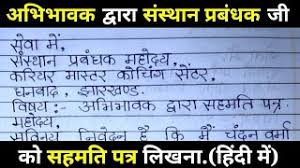 अभिभावक द्वारा संस्थान प्रबंधक जी
सेवा में,
संस्थान प्रबंधक महोदय,
करियर मास्टर कोचिंग सेंटर,
धनबाद, झारखण्ड.
विषय:- अभिभावक द्वारा सहमति पत्र.
महोदय,
सविनय निवेदन है कि मैं चंदन वर्मा
को सहमति पत्र लिखना.(हिंदी में)